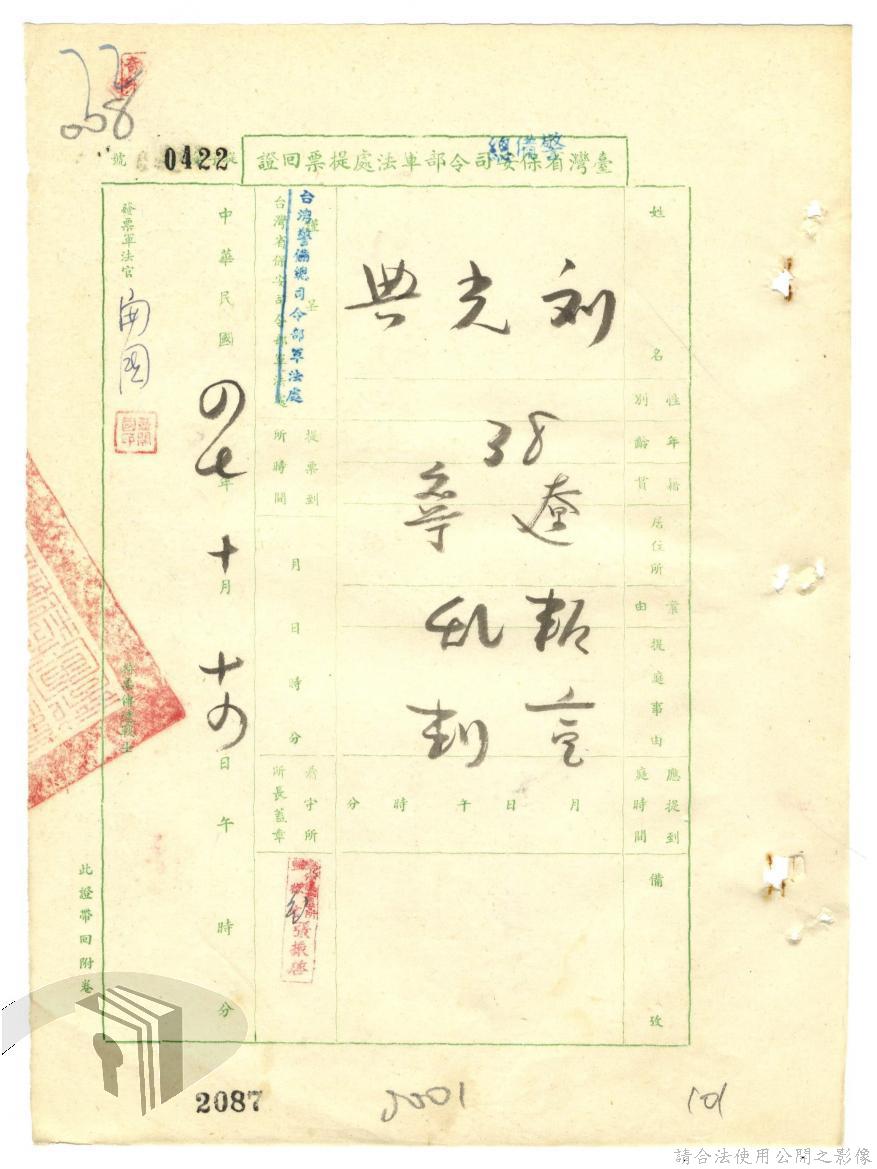 258
臺灣省保安司令部軍法處提票回證
警備總
號
0422
姓名
刘光典
性別
年齡
38
籍貫
遼寧
居住所
案由
叛乱
提庭事由
宣判
應提到庭時間
月 日 午 時 分
備攷
謹呈
台灣省保安司令部軍法處
台灣警備總司令部軍法處
提票到所時間
月 日 時 分
看守所所長蓋章
張振啓
中華民國四七年十月十四日午 時 分
發票軍法官
此證帶回附卷
2087
2001
101
請合法使用公開之影像